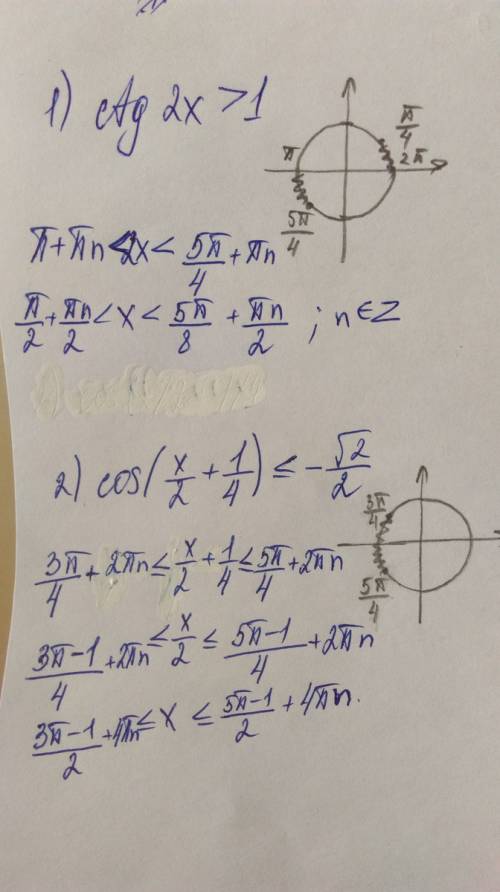 1) ctg 2x > 1
π/4
2π
π
5π/4
π + πn < 2x < 5π/4 + πn
π/2 + πn/2 < x < 5π/8 + πn/2 ; n ∈ Z
2) cos(x/2 + 1/4) ≤ -√2/2
3π/4
5π/4
3π/4 + 2πn ≤ x/2 + 1/4 ≤ 5π/4 + 2πn
(3π-1)/4 + 2πn ≤ x/2 ≤ (5π-1)/4 + 2πn
(3π-1)/2 + 4πn ≤ x ≤ (5π-1)/2 + 4πn.